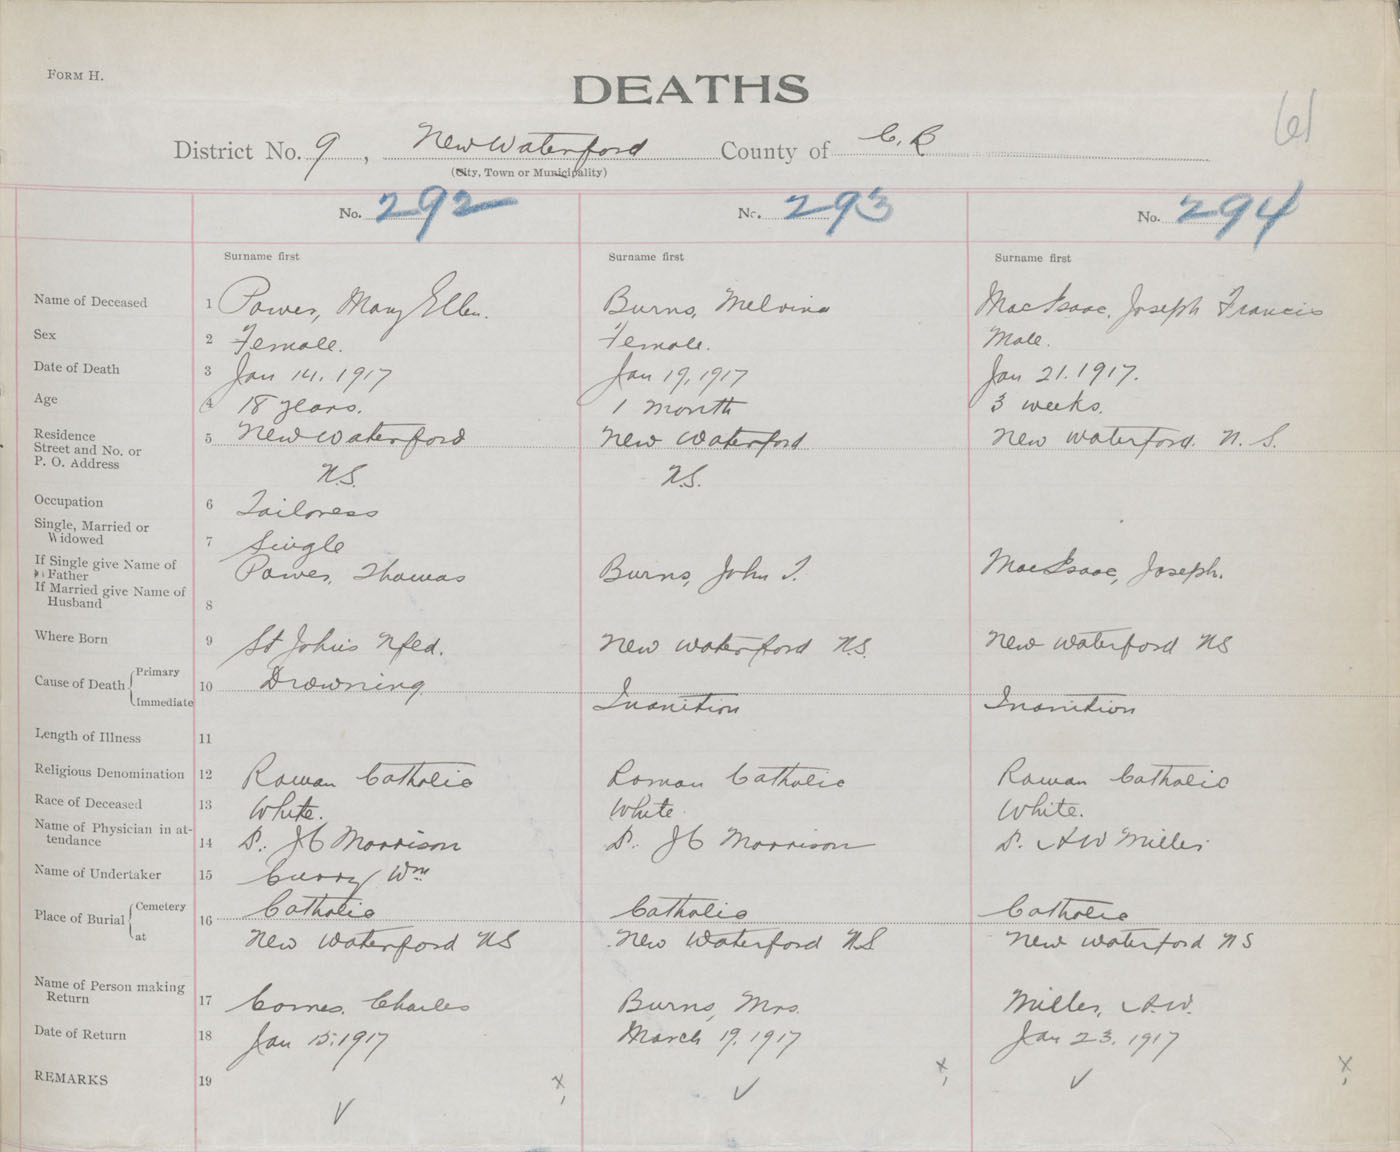 FORM H.
DEATHS
61
District No. 9, New Waterford County of C. B
(City, Town or Municipality)
No. 292 No. 293 No. 294
Surname first Surname first Surname first
Name of Deceased 1 Power, Mary Ellen. Burns, Melvina MacIsaac, Joseph Francis
Sex 2 Female. Female. Male.
Date of Death 3 Jan 14, 1917 Jan 19, 1917 Jan 21. 1917.
Age 4 18 years. 1 month 3 weeks.
Residence
Street and No. or 5 New Waterford New Waterford New Waterford. N. S.
P. O. Address
N.S. N.S.
Occupation 6 Tailoress
Single, Married or
Widowed 7 Single
If Single give Name of
Father Power, Thomas Burns, John J. MacIsaac, Joseph.
If Married give Name of
Husband 8
Where Born 9 St John's Nfld. New Waterford N.S. New Waterford NS
Cause of Death Primary 10 Drowning
Immediate Inanition Inanition
Length of Illness 11
Religious Denomination 12 Roman Catholic Roman Catholic Roman Catholic
Race of Deceased 13 White. White White.
Name of Physician in at-
tendance 14 D. J C Morrison D. J C Morrison D. A W Miller
Name of Undertaker 15 Curry Wm
Place of Burial Cemetery 16 Catholic Catholic Catholic
at New Waterford NS New Waterford N.S New Waterford NS
Name of Person making
Return 17 Charles Burns, Mrs. Miller, A.W.
Date of Return 18 Jan 15, 1917 March 19, 1917 Jan 23, 1917
REMARKS 19